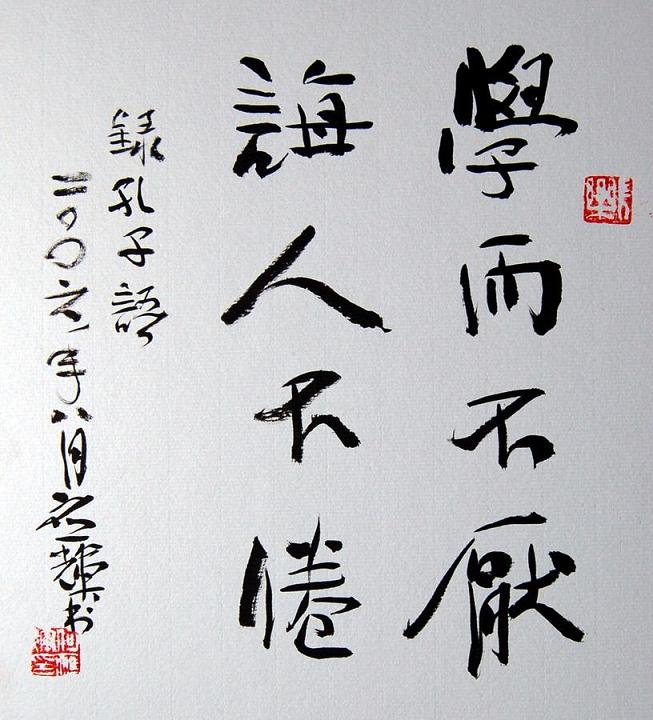 學而不厭
誨人不倦
錄孔子語
二〇〇六年八月
輝书